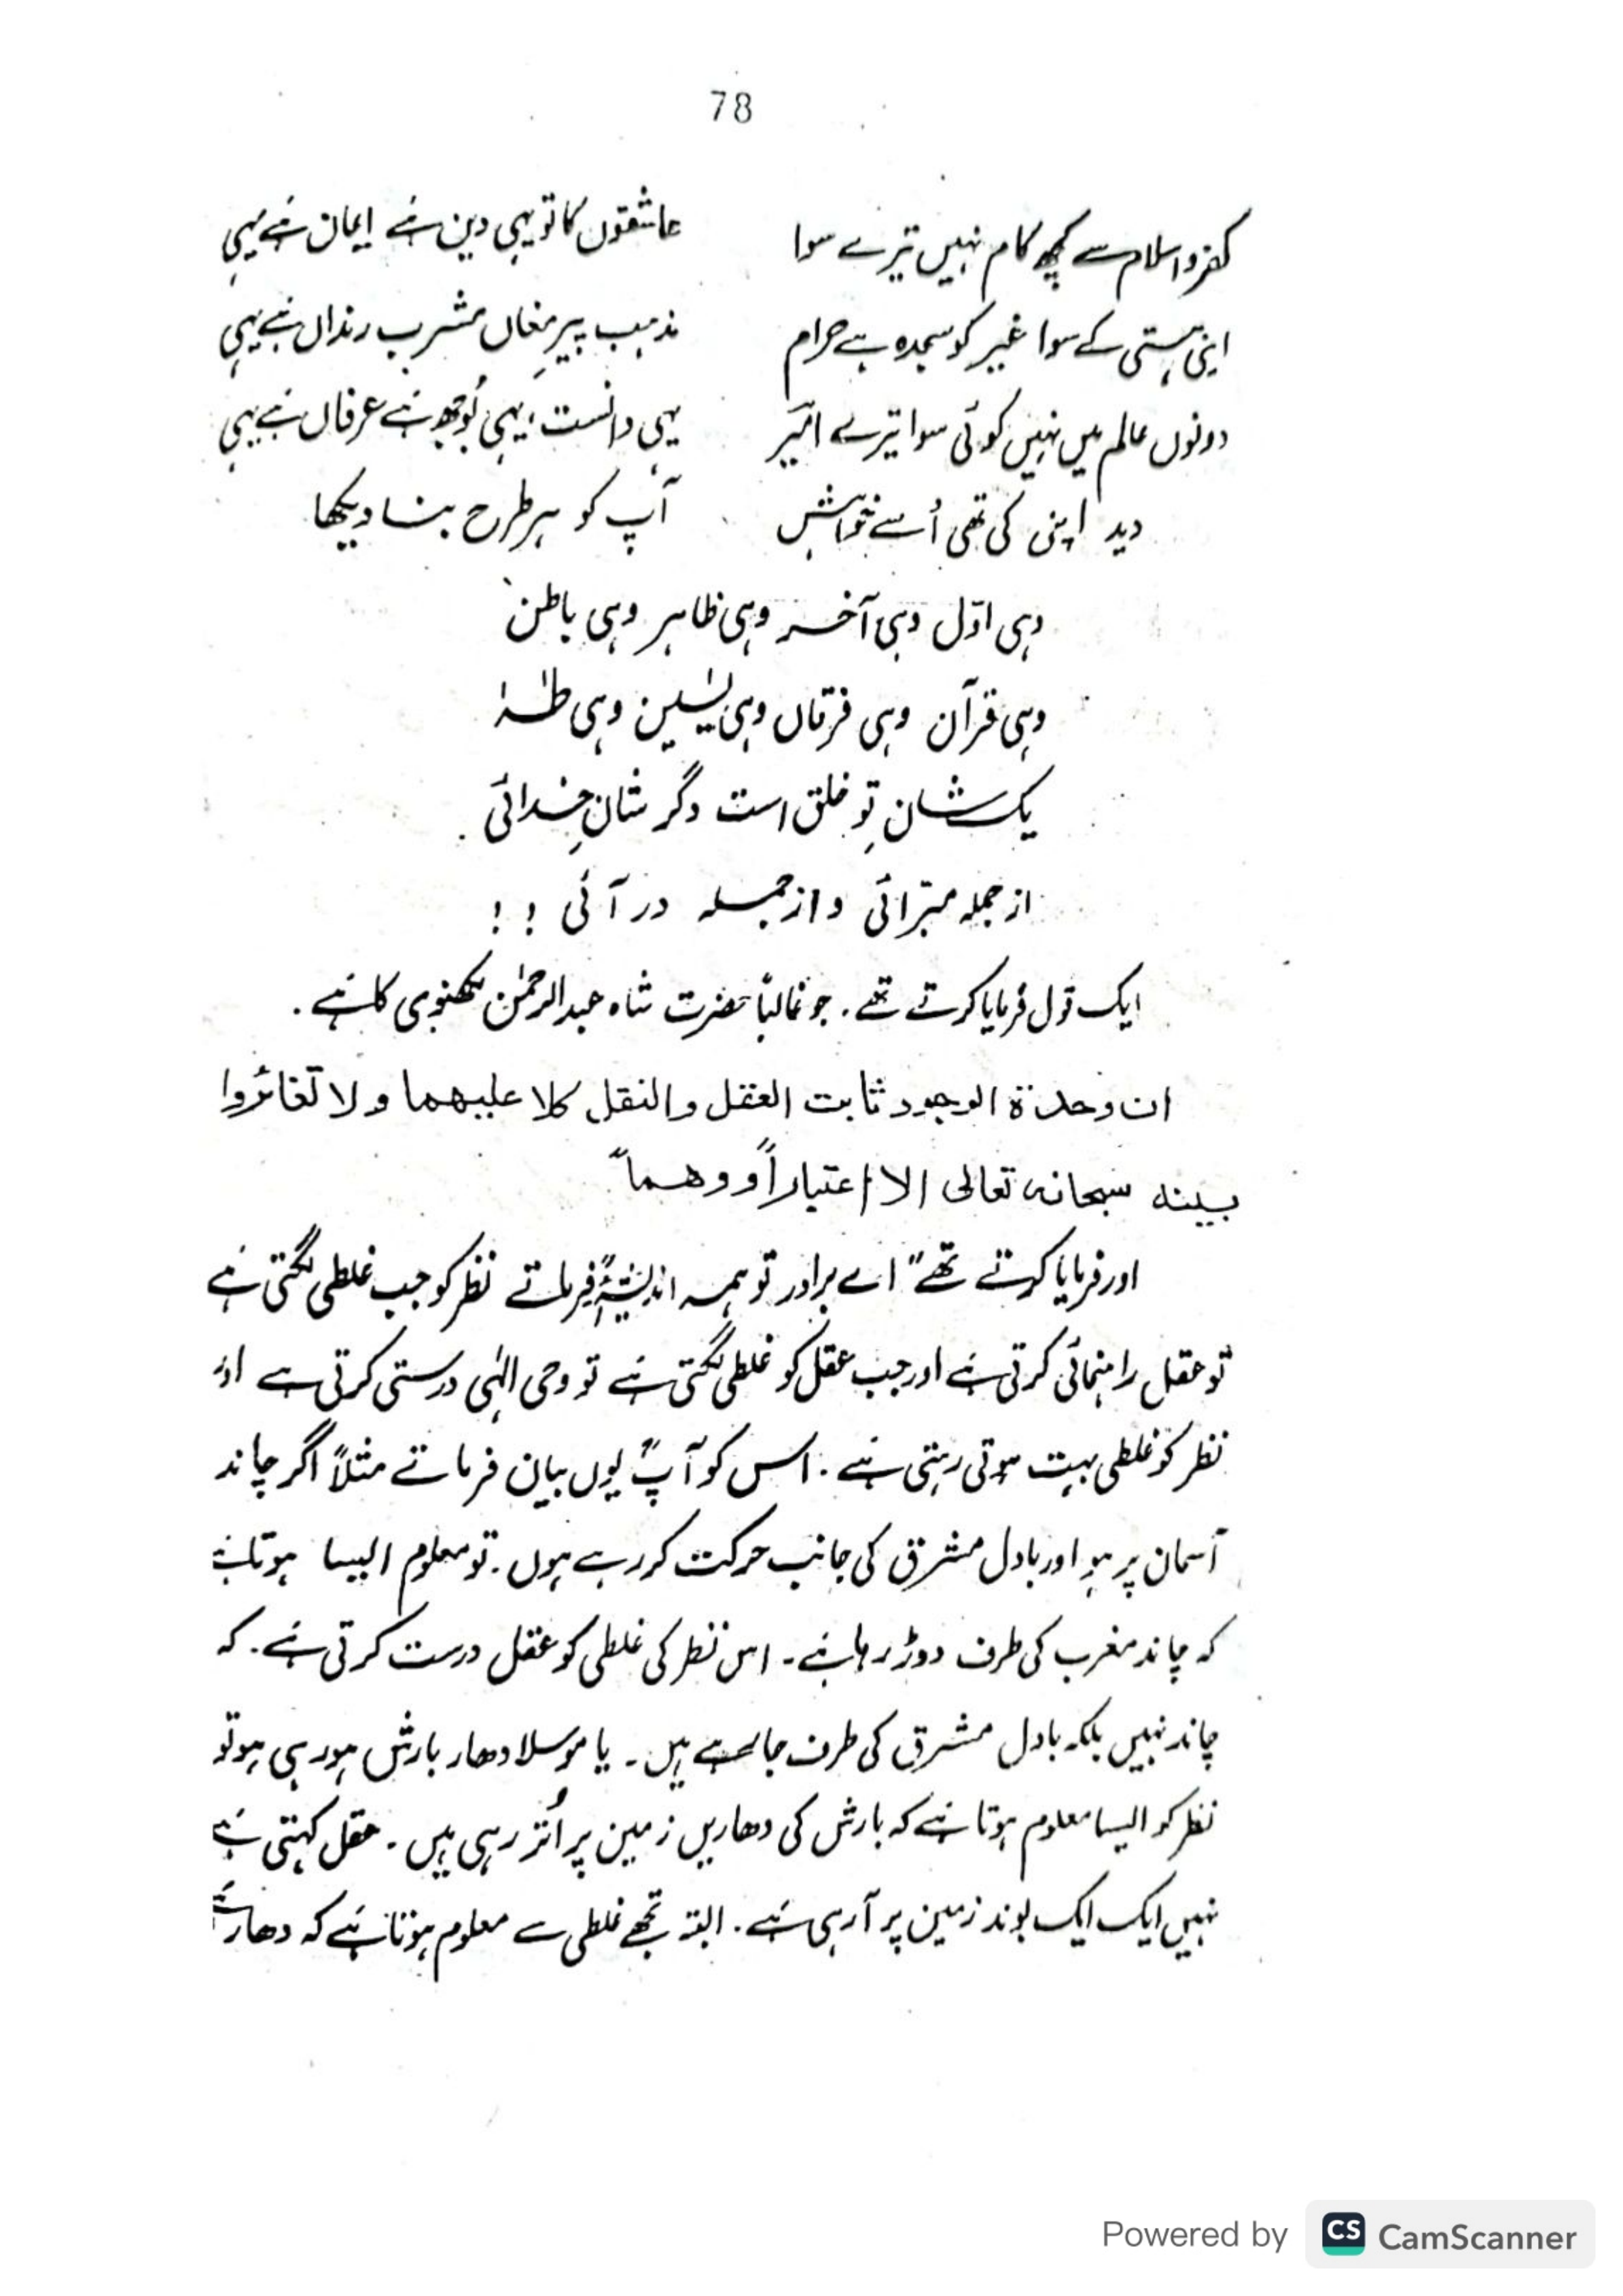 78
کفر و اسلام سے کچھ کام نہیں تیرے سوا عاشقوں کا تو یہی دین ہے ایمان ہے یہی
اپنی ہستی کے سوا غیر کو سجدہ ہے حرام مذہب پیرِ مغاں مشرب رنداں ہے یہی
دونوں عالم میں نہیں کوئی سوا تیرے اثیر یہی دانست، یہی بُوجھ ہے عرفاں ہے یہی
دید اپنی کی تھی اُسے خواہش آپ کو ہر طرح بنا دیکھا
وہی اوّل وہی آخر وہی ظاہر وہی باطن
وہی قرآن وہی فرقاں وہی یٰسین وہی طٰہٰ
یک شانِ تو خلق است دگر شانِ خدائی
از جملہ مبرائی و از جملہ در آئی ! !
ایک قول فرمایا کرتے تھے. جو غالباً حضرت شاہ عبدالرحمٰن لکھنوی کا ہے.
ان وحدة الوجود ثابت العقل والنقل كلا عليهما ولا تغائروا
بينه سبحانه تعالى الا اعتباراً و وهماً
اور فرمایا کرتے تھے "اے برادر تو ہمہ اندیشۂ" فرماتے نظر کو جب غلطی لگتی ہے
تو عقل راہنمائی کرتی ہے اور جب عقل کو غلطی لگتی ہے تو وحی الٰہی درستی کرتی ہے اور
نظر کو غلطی بہت ہوتی رہتی ہے. اس کو آپؒ یوں بیان فرماتے مثلاً اگر چاند
آسمان پر ہو اور بادل مشرق کی جانب حرکت کر رہے ہوں. تو معلوم ایسا ہوتا ہے
کہ چاند مغرب کی طرف دوڑ رہا ہے۔ اس نظر کی غلطی کو عقل درست کرتی ہے. کہ
چاند نہیں بلکہ بادل مشرق کی طرف جا رہے ہیں۔ یا موسلا دھار بارش ہو رہی ہو تو
نظر کو ایسا معلوم ہوتا ہے کہ بارش کی دھاریں زمین پر اُتر رہی ہیں. عقل کہتی ہے
نہیں ایک ایک بوند زمین پر آ رہی ہے. البتہ تجھے غلطی سے معلوم ہوتا ہے کہ دھار ہے
Powered by CS CamScanner